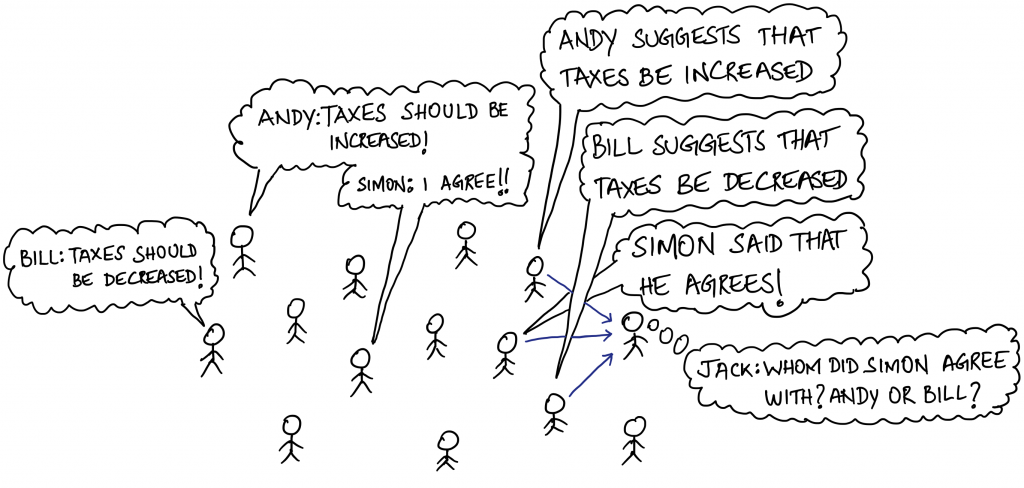 ANDY SUGGESTS THAT
TAXES BE INCREASED
ANDY: TAXES SHOULD BE
INCREASED!
SIMON: I AGREE!!
BILL SUGGESTS THAT
TAXES BE DECREASED
BILL: TAXES SHOULD
BE DECREASED!
SIMON SAID THAT
HE AGREES!
JACK: WHOM DID SIMON AGREE
WITH? ANDY OR BILL?